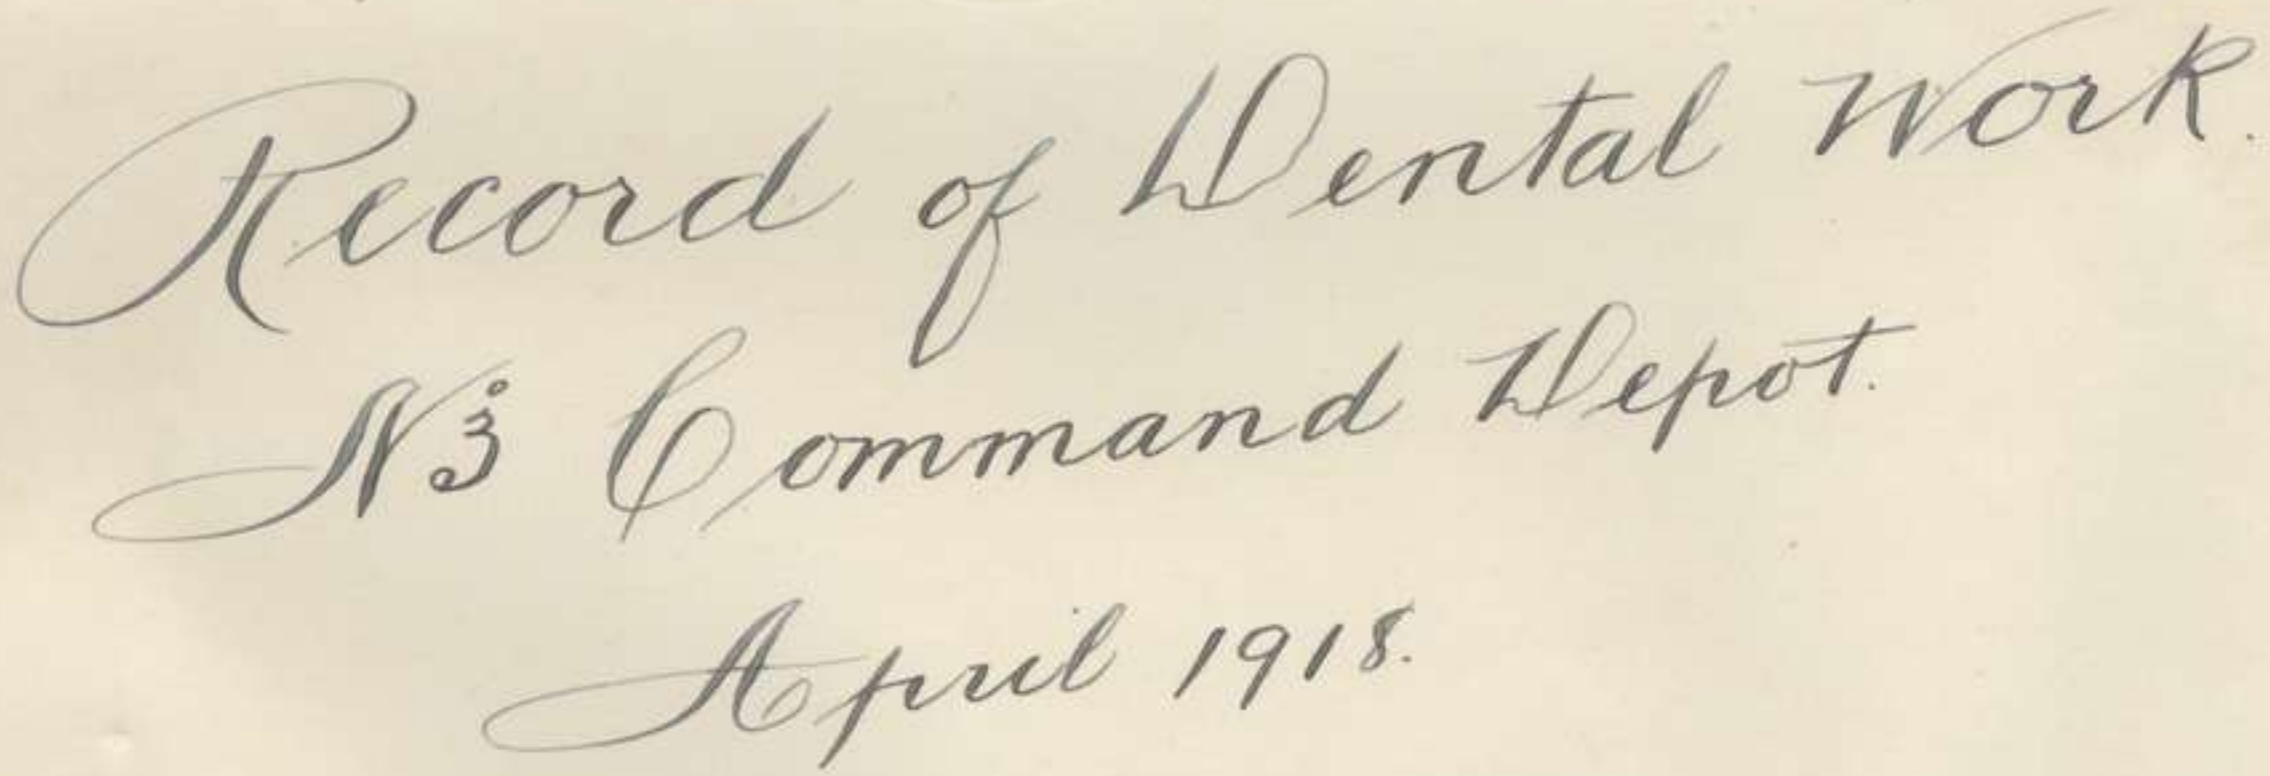 Record of Dental Work.
Nº3 Command Depot.
April 1918.